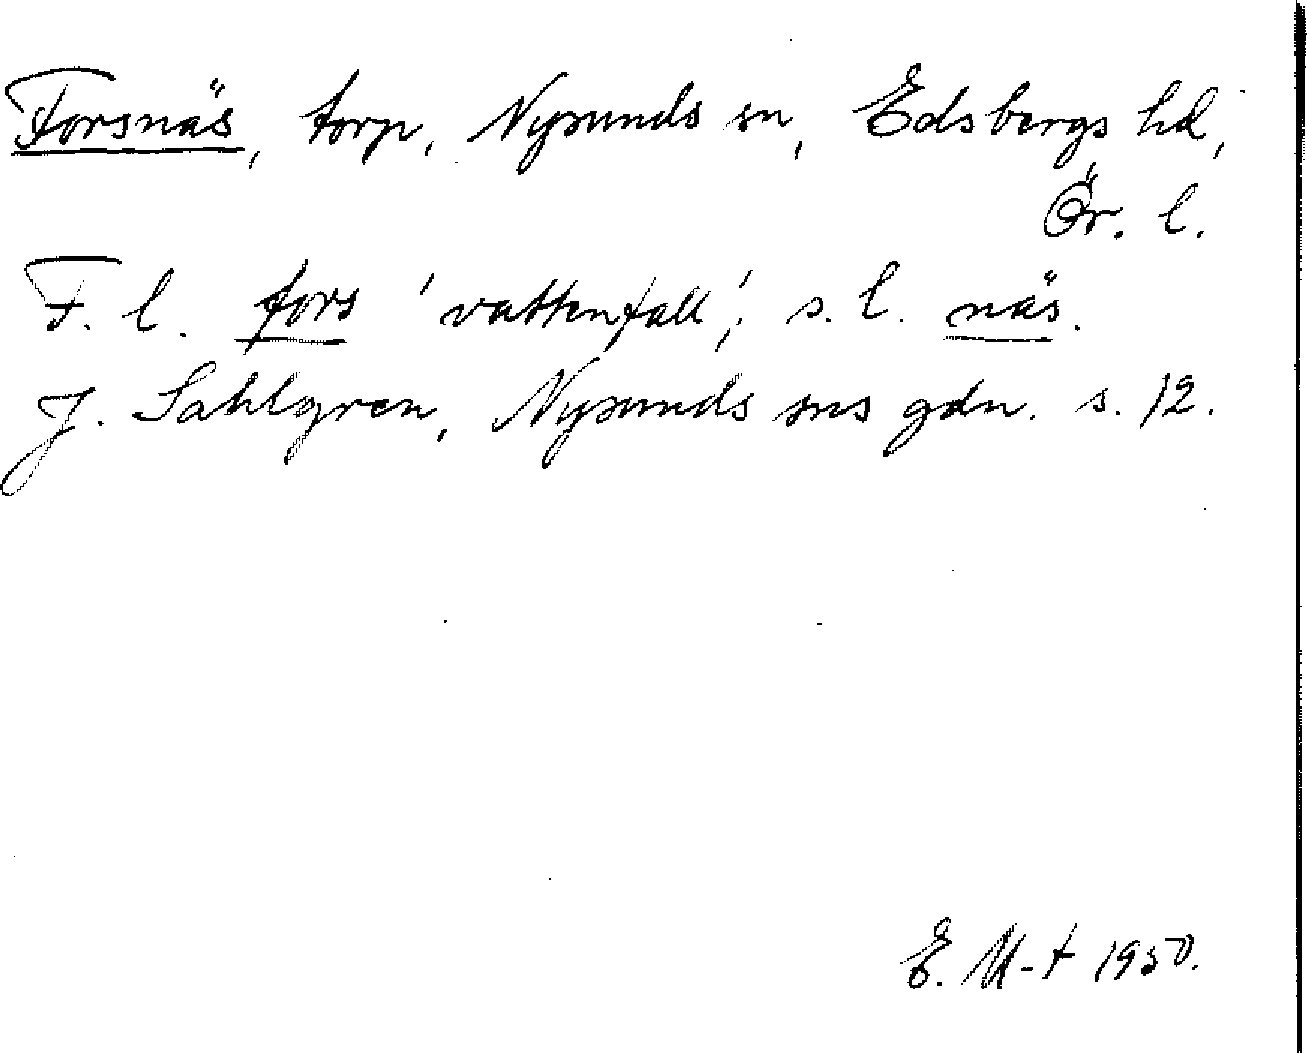 Forsnäs, torp, Nysunds sn, Edsbergs hd,
Ör. l.
F. l. fors 'vattenfall'; s. l. näs.
J. Sahlgren, Nysunds sns gdn. s. 12.
E. M-t 1950.